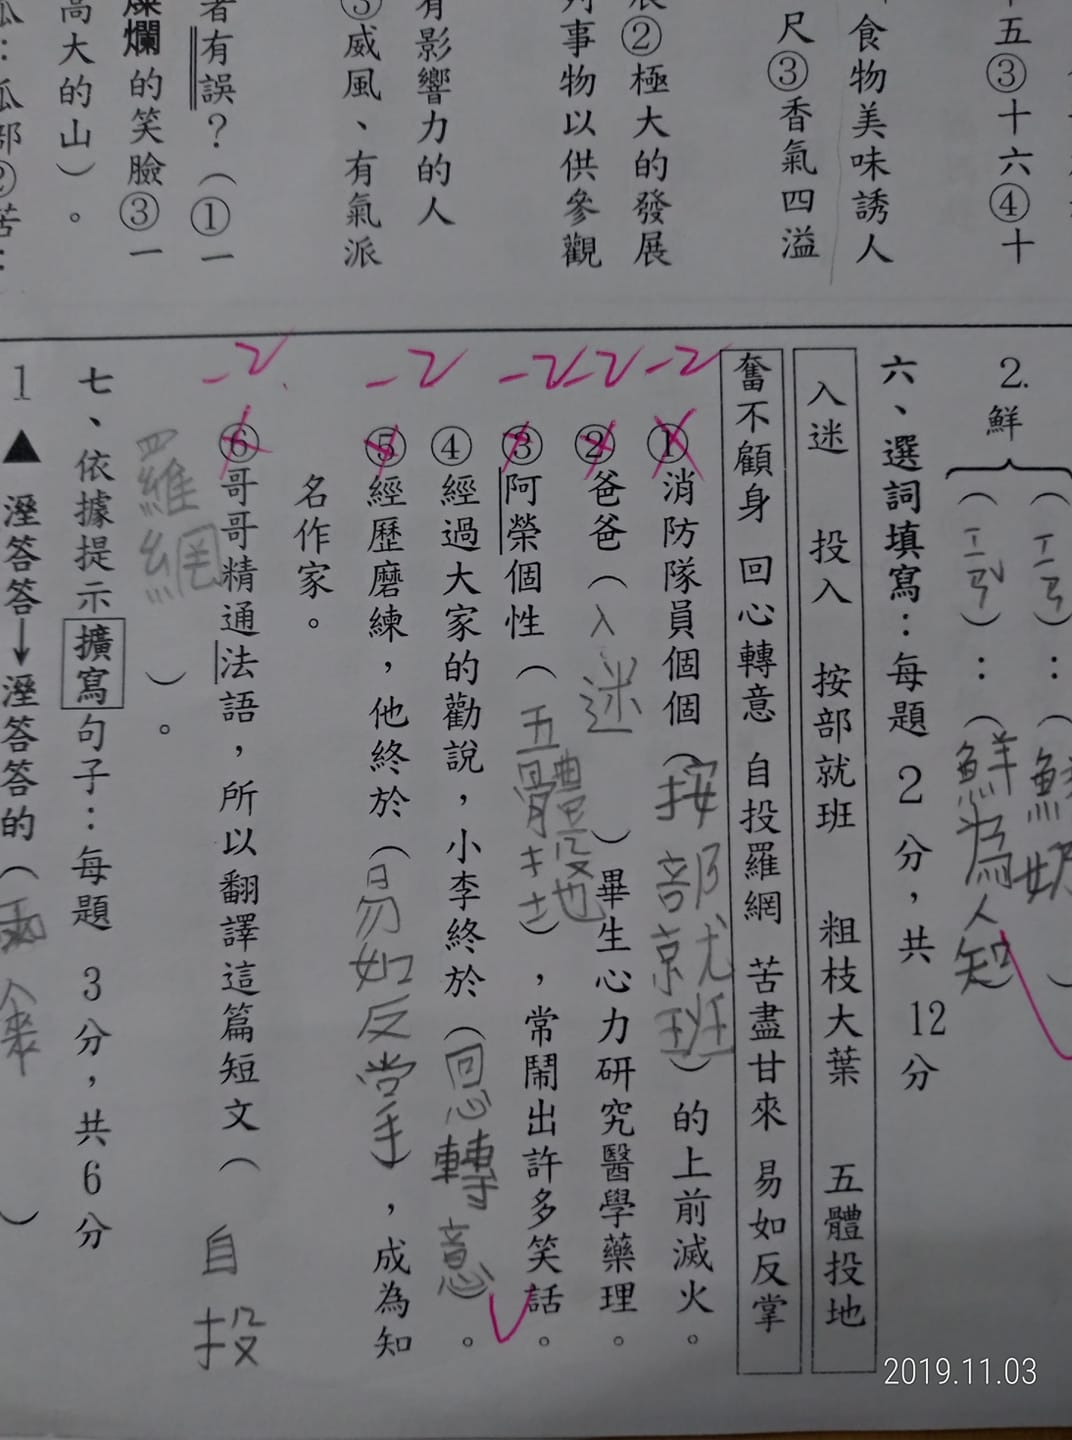 十五③十六④十
食物美味誘人
尺③香氣四溢
展②極大的發展
事物以供參觀
有影響力的人
③威風、有氣派
者有誤？（①一
燦爛的笑臉③一
高大的山）。
2.鮮
（ㄒㄧㄢ）：（鮮奶）
（ㄒㄧㄢˇ）：（鮮為人知）
六、選詞填寫：每題2分，共12分
入迷 投入 按部就班 粗枝大葉 五體投地
奮不顧身 回心轉意 自投羅網 苦盡甘來 易如反掌
-2 -2 -2 -2 -2
①消防隊員個個（按部就班）的上前滅火。
②爸爸（入迷）畢生心力研究醫學藥理。
③阿榮個性（五體投地），常鬧出許多笑話。
④經過大家的勸說，小李終於（回心轉意）。
⑤經歷磨練，他終於（易如反掌），成為知
名作家。
⑥哥哥精通法語，所以翻譯這篇短文（自投
羅網）。
七、依據提示擴寫句子：每題3分，共6分
1▲溼答答→溼答答的（
2019.11.03